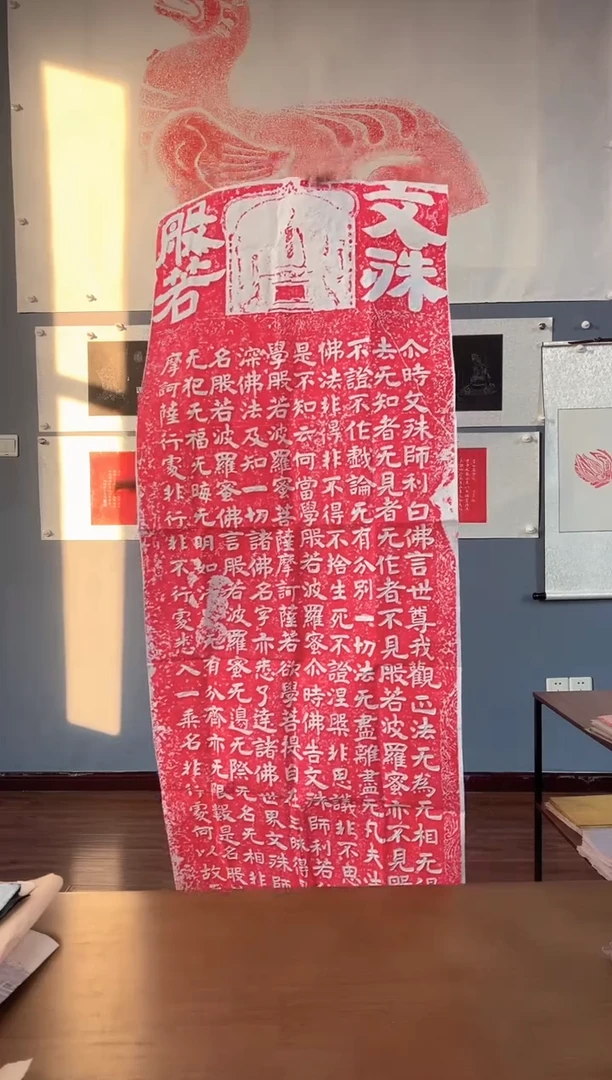 文殊
般若
尒時文殊師利白佛言世尊我觀正法无為无相无得
去无知者无見者无作者不見般若波羅蜜亦不見般
不證不作戲論无有分別一切法无盡離盡无凡夫法
佛法非得非不得不捨生死不證涅槃非思議非不思
是不知云何當學般若波羅蜜尒時佛告文殊師利若
學般若波羅蜜菩薩摩訶薩若欲學菩提自昧得
深佛法及知一切諸佛名字亦悉了達諸佛世界文殊師
名般若波羅蜜佛言般若波羅蜜无邊无際无名无相非
无犯无福无晦无明如无有分齊亦无限數是名般
摩訶薩行處非行非不行處悉入一乘名非行處何以故